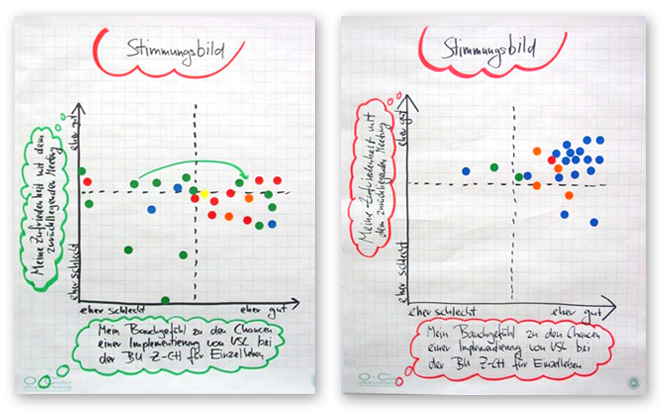 Stimmungsbild
eher gut
Meine Zufriedenheit mit dem
zurückliegenden Meeting
eher schlecht
eher schlecht
eher gut
Mein Bauchgefühl zu den Chancen
einer Implementierung von VSL bei
der BU Z-CH für Einzelleben
Stimmungsbild
eher gut
Meine Zufriedenheit mit
dem zurückliegenden Meeting
eher schlecht
eher schlecht
eher gut
Mein Bauchgefühl zu den Chancen
einer Implementierung von VSL bei
der BU Z-CH für Einzelleben